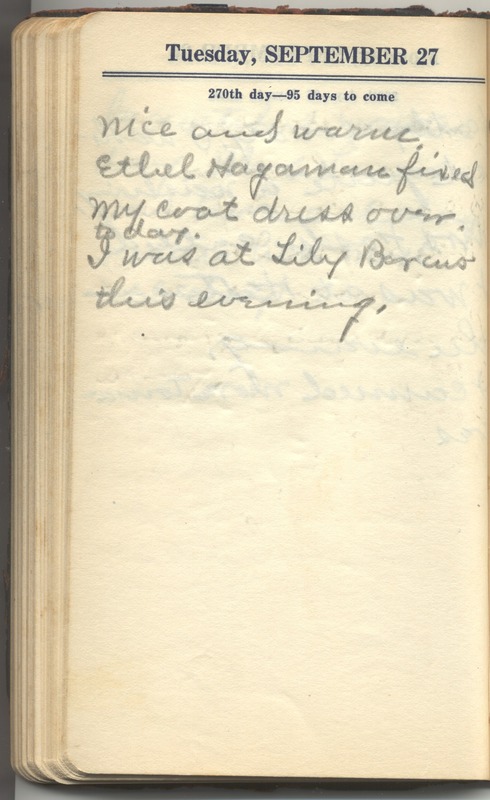 Tuesday, SEPTEMBER 27
270th day—95 days to come
Nice and warm
Ethel Hagaman fixed
my coat dress over.
today.
I was at Lily Barcus
this evening.